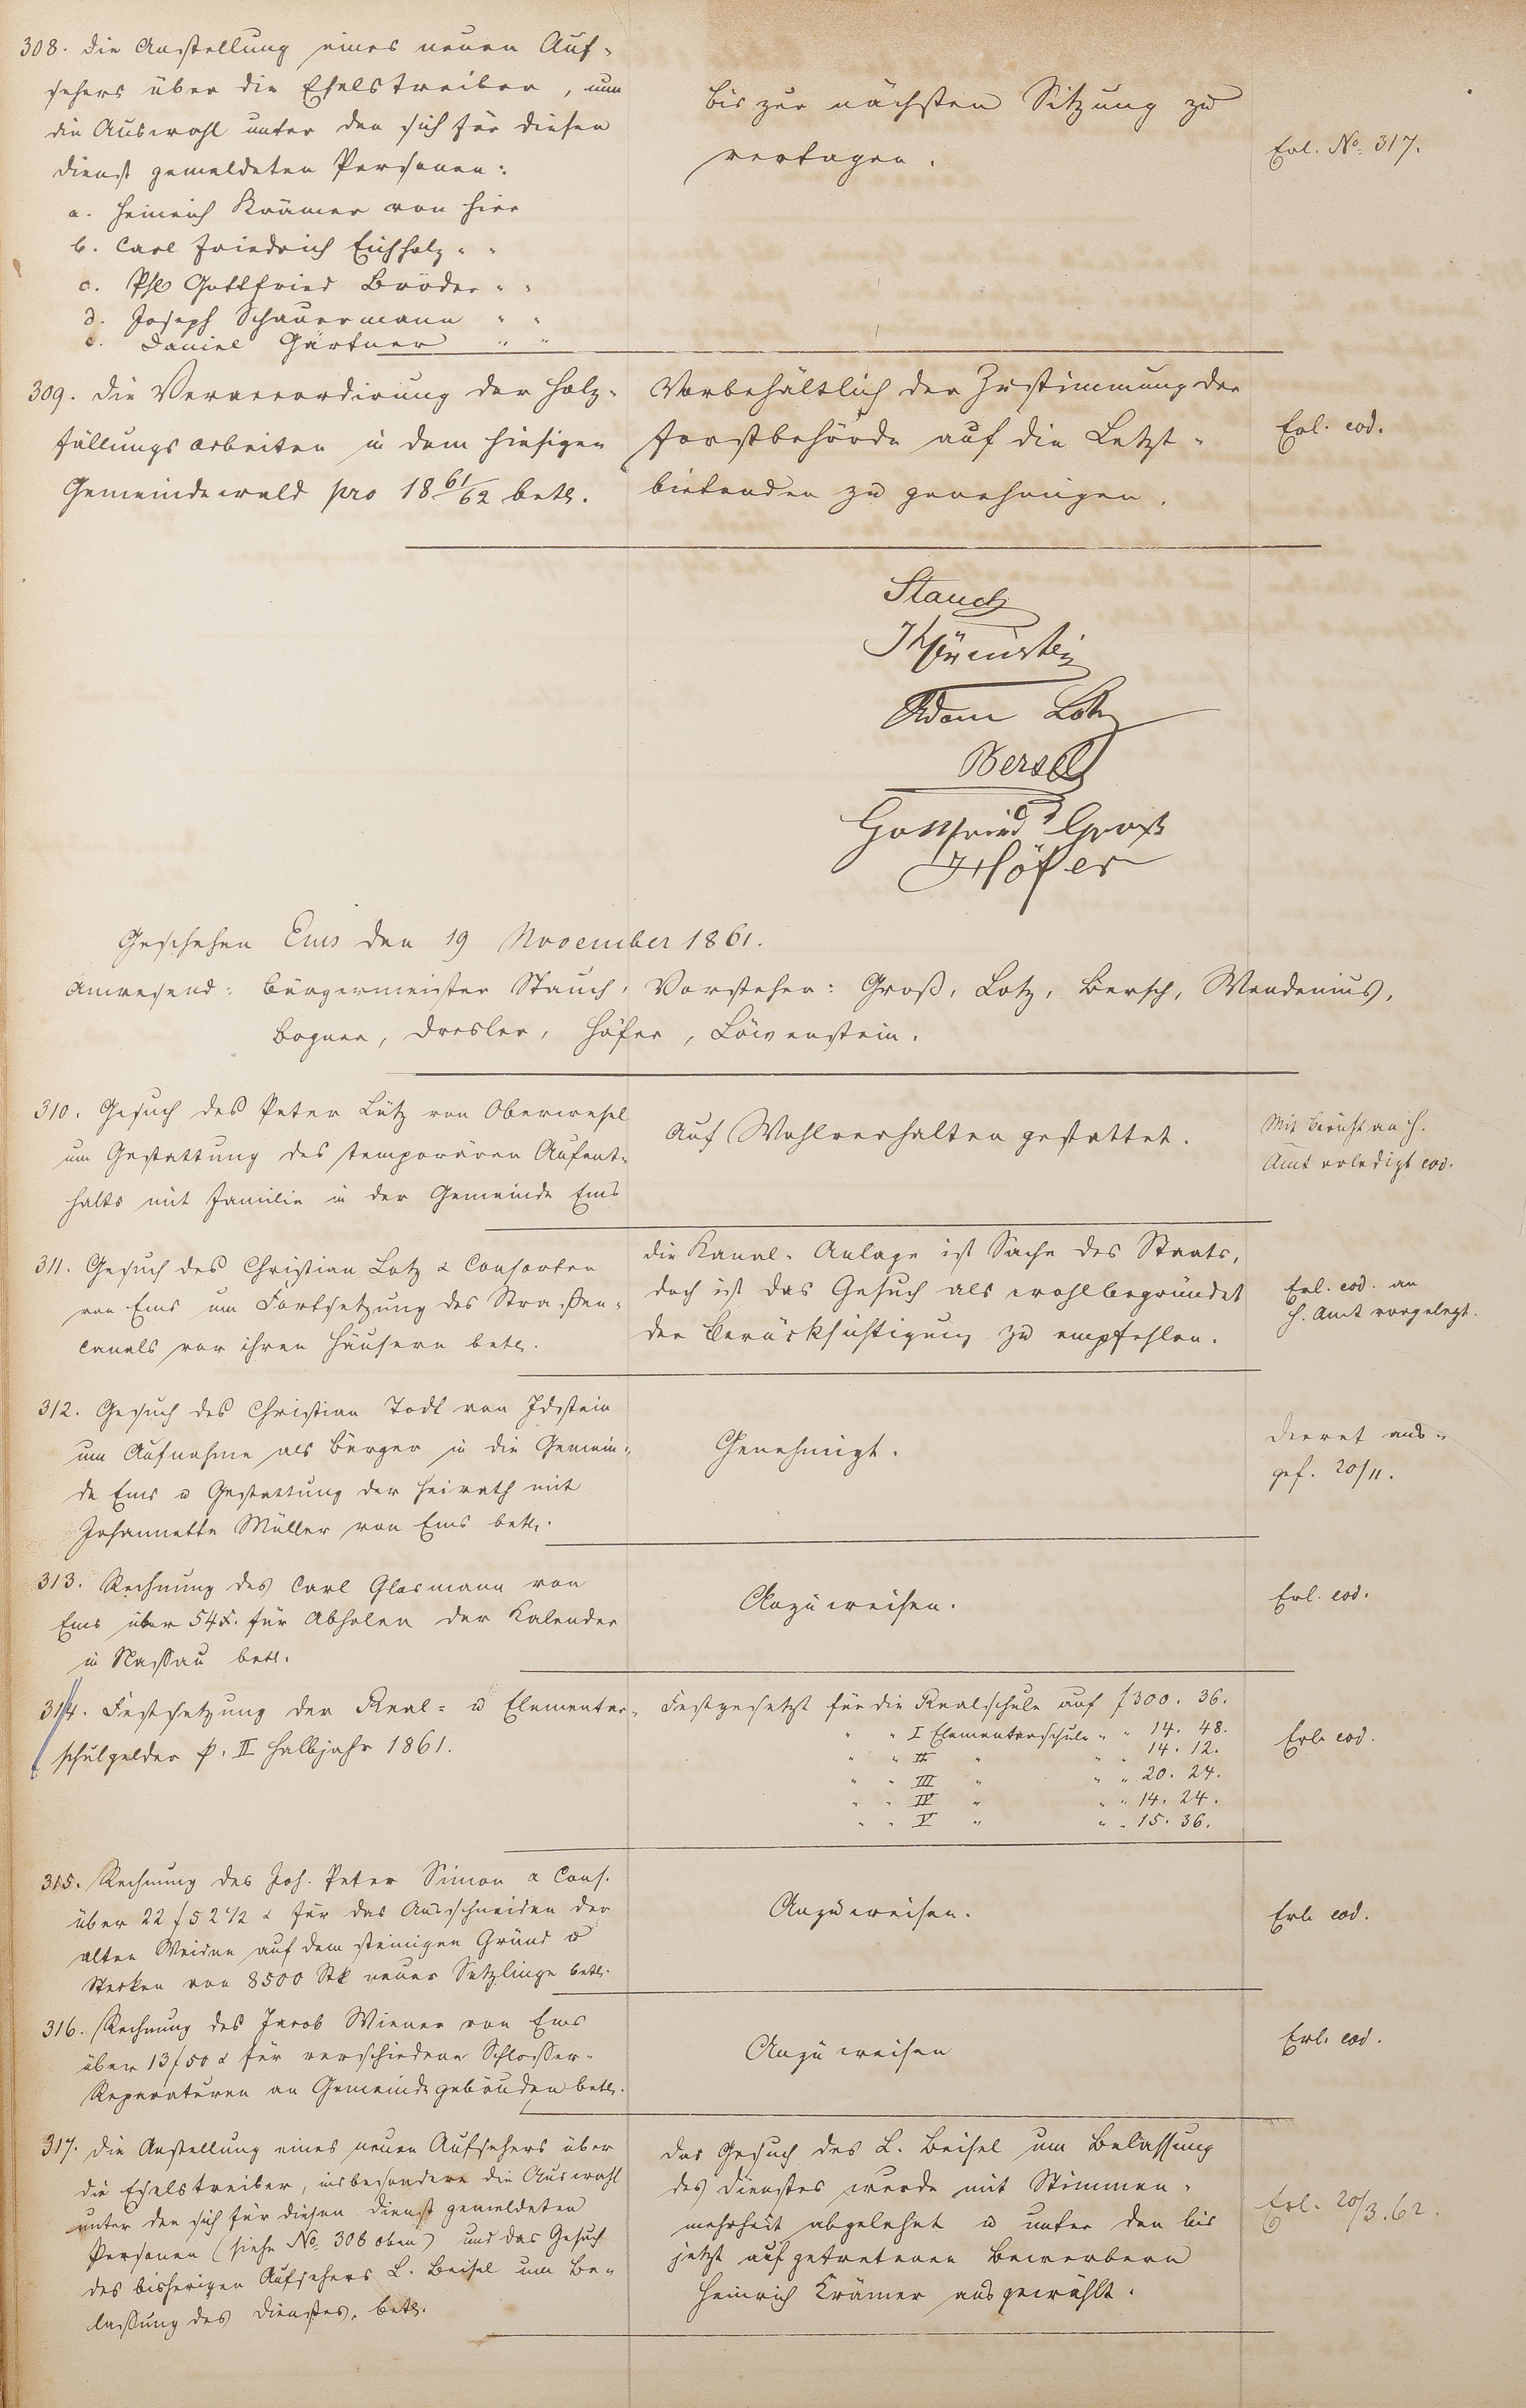 308. die Anstellung eines neuen Auf-
sehers über die Eselstreiber, nun
die Auswahl unter den sich für diesen
Dienst gemeldeten Personen:
a. Heinrich Krämer von hier
b. Carl Friedrich Eichholz " "
c. Phil Gottfried Bröder " "
d. Joseph Schauermann " "
e. Daniel Gärtner " "
bis zur nächsten Sitzung zu
vertagen.
Erl. No. 317.
309. die Veraccordirung der Holz-
fällungsarbeiten in dem hiesigen
Gemeindewald pro 18 61/62 betr.
Vorbehältlich der Zustimmung der
Forstbehörde auf die Letzt-
bietenden zu genehmigen.
Erl. eod.
Stauch
Löwenstein
Adam Lotz
Bersch
Gottfried Groß
Höfer
Geschehen Ems den 19 November 1861.
Anwesend: Bürgermeister Stauch, Vorsteher: Groß, Lotz, Bersch, Wendenius,
Bogner, Dresler, Höfer, Löwenstein.
310. Gesuch des Peter Lütz von Oberwesel
um Gestattung des temporären Aufent-
halts mit Familie in der Gemeinde Ems
Auf Wohlverhalten gestattet.
Mit Bericht an H.
Amt erledigt eod.
311. Gesuch des Christian Lotz & Consorten
von Ems um Fortsetzung des Straßen-
canals vor ihren Häusern betr.
die Kanal-Anlage ist Sache des Staats,
doch ist das Gesuch als wohlbegründet
der Berücksichtigung zu empfehlen.
Erl. eod. an
H. Amt vorgelegt.
312. Gesuch des Christian Todt von Idstein
um Aufnahme als Bürger in die Gemein-
de Ems u Gestattung der Heirath mit
Johannette Müller von Ems betr.
Genehmigt.
Decret aus-
gef. 20/11.
313. Rechnung des Carl Glasmann von
Ems über 54 x. für Abholen der Kalender
in Nassau betr.
Anzuweisen.
Erl. eod.
314. Festsetzung der Real- u Elementar-
schulgelder p. II Halbjahr 1861.
Festgesetzt für die Realschule auf f 300. 36.
" " I Elementarschule " " 14. 48.
" " II " " " 14. 12.
" " III " " " 20. 24.
" " IV " " " 14. 24.
" " V " " " 15. 36.
Erl. eod.
315. Rechnung des Joh. Peter Simon & Cons.
über 22 f 52 1/2 x für das Ausschneiden der
alten Weiden auf dem steinigen Gründ u
Stecken von 8500 Stk neuer Setzlinge betr.
Anzuweisen.
Erl. eod.
316. Rechnung des Jacob Wiener von Ems
über 13 f 50 x für verschiedene Schlosser-
Reparaturen an Gemeindegebäuden betr.
Anzuweisen
Erl. eod.
317. die Anstellung eines neuen Aufsehers über
die Eselstreiber, insbesondere die Auswahl
unter den sich für diesen Dienst gemeldeten
Personen (siehe No. 308 oben) und das Gesuch
des bisherigen Aufsehers L. Beisel um Be-
lassung des Dienstes, betr.
das Gesuch des L. Beisel um Belassung
des Dienstes wurde mit Stimmen-
mehrheit abgelehnt u unter den bis
jetzt aufgetretenen Bewerbern
Heinrich Krämer ausgewählt.
Erl. 20/3. 62.